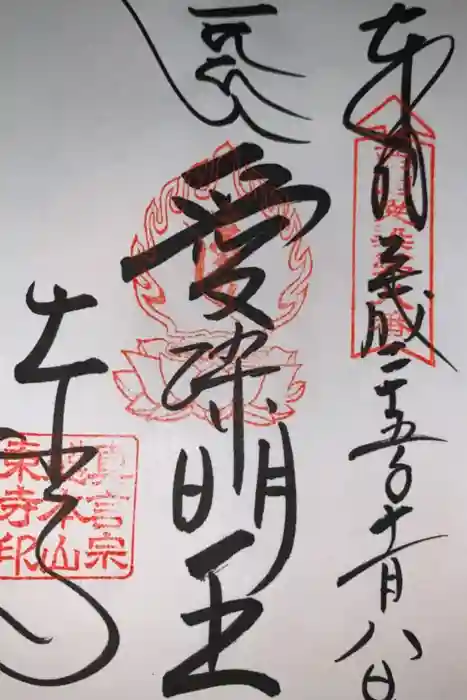 奉拝
平成二十五年十一月八日
愛染明王
東寺
真言宗
總本山
東寺印